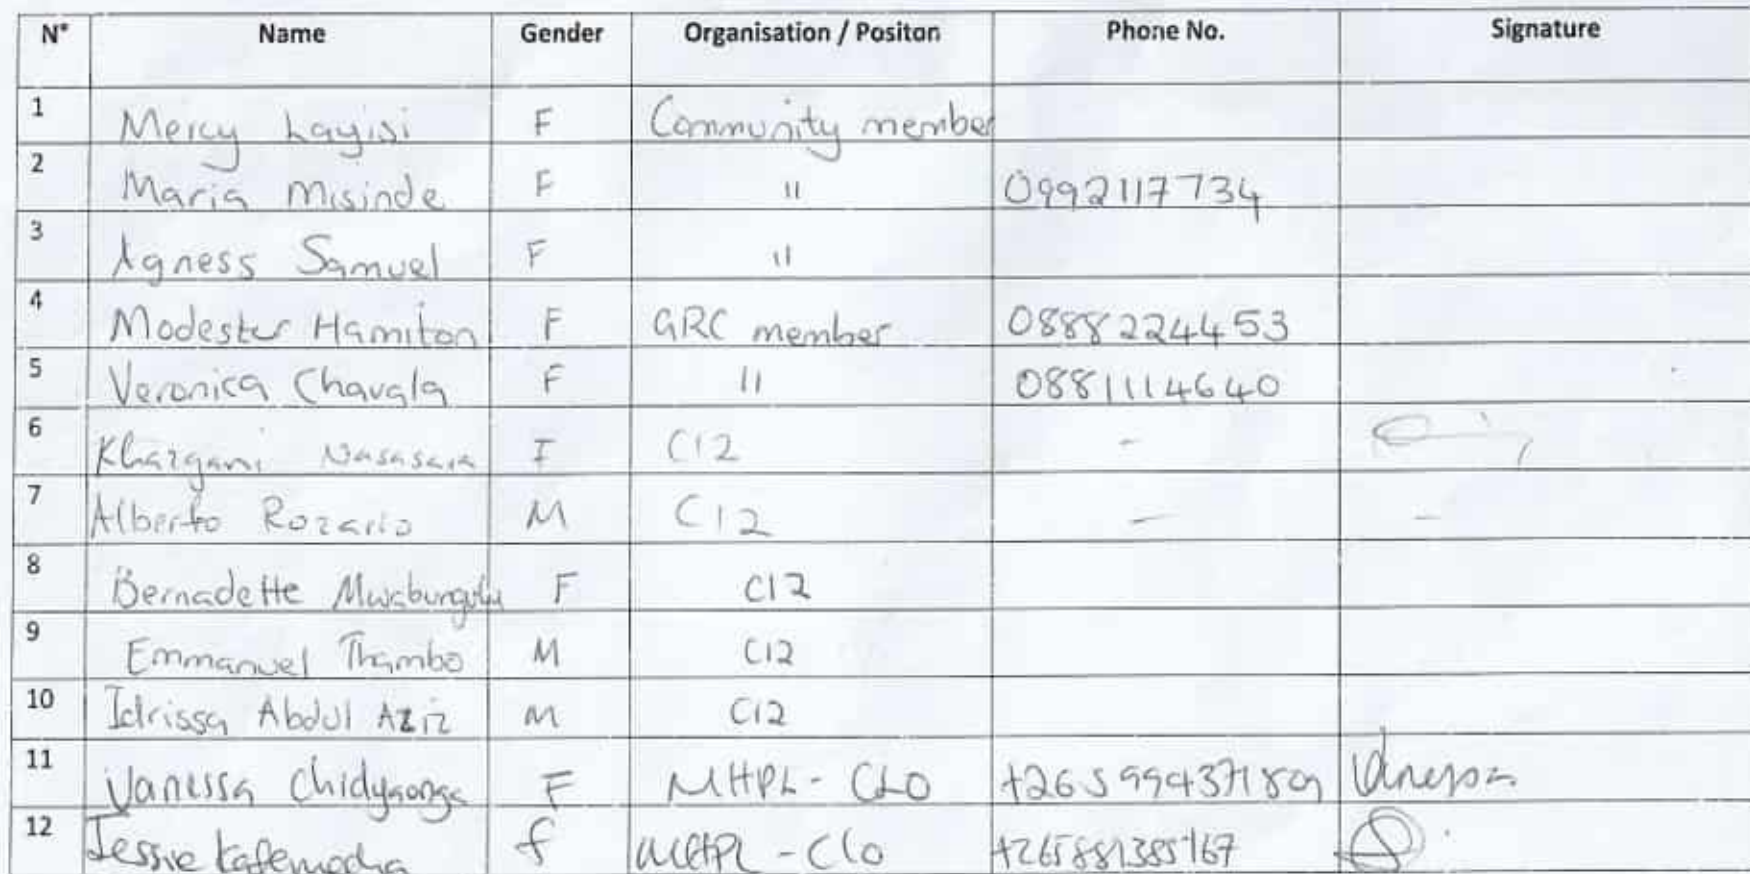 N° Name Gender Organisation / Positon Phone No. Signature
1 Mercy Layisi F Community member
2 Maria Misinde F " 0992117734
3 Agness Samuel F "
4 Modester Hamiton F GRC member 0888224453
5 Veronica Chavala F " 0881114640
6 I C12 -
7 Alberto Rozario M C12 - -
8 Bernadette F C12
9 Emmanuel Thambo M C12
10 Idrissa Abdul Aziz M C12
11 Vanessa Chidyaonga F MHPL - CLO Vanessa
12 Jessie f MHPL - Clo